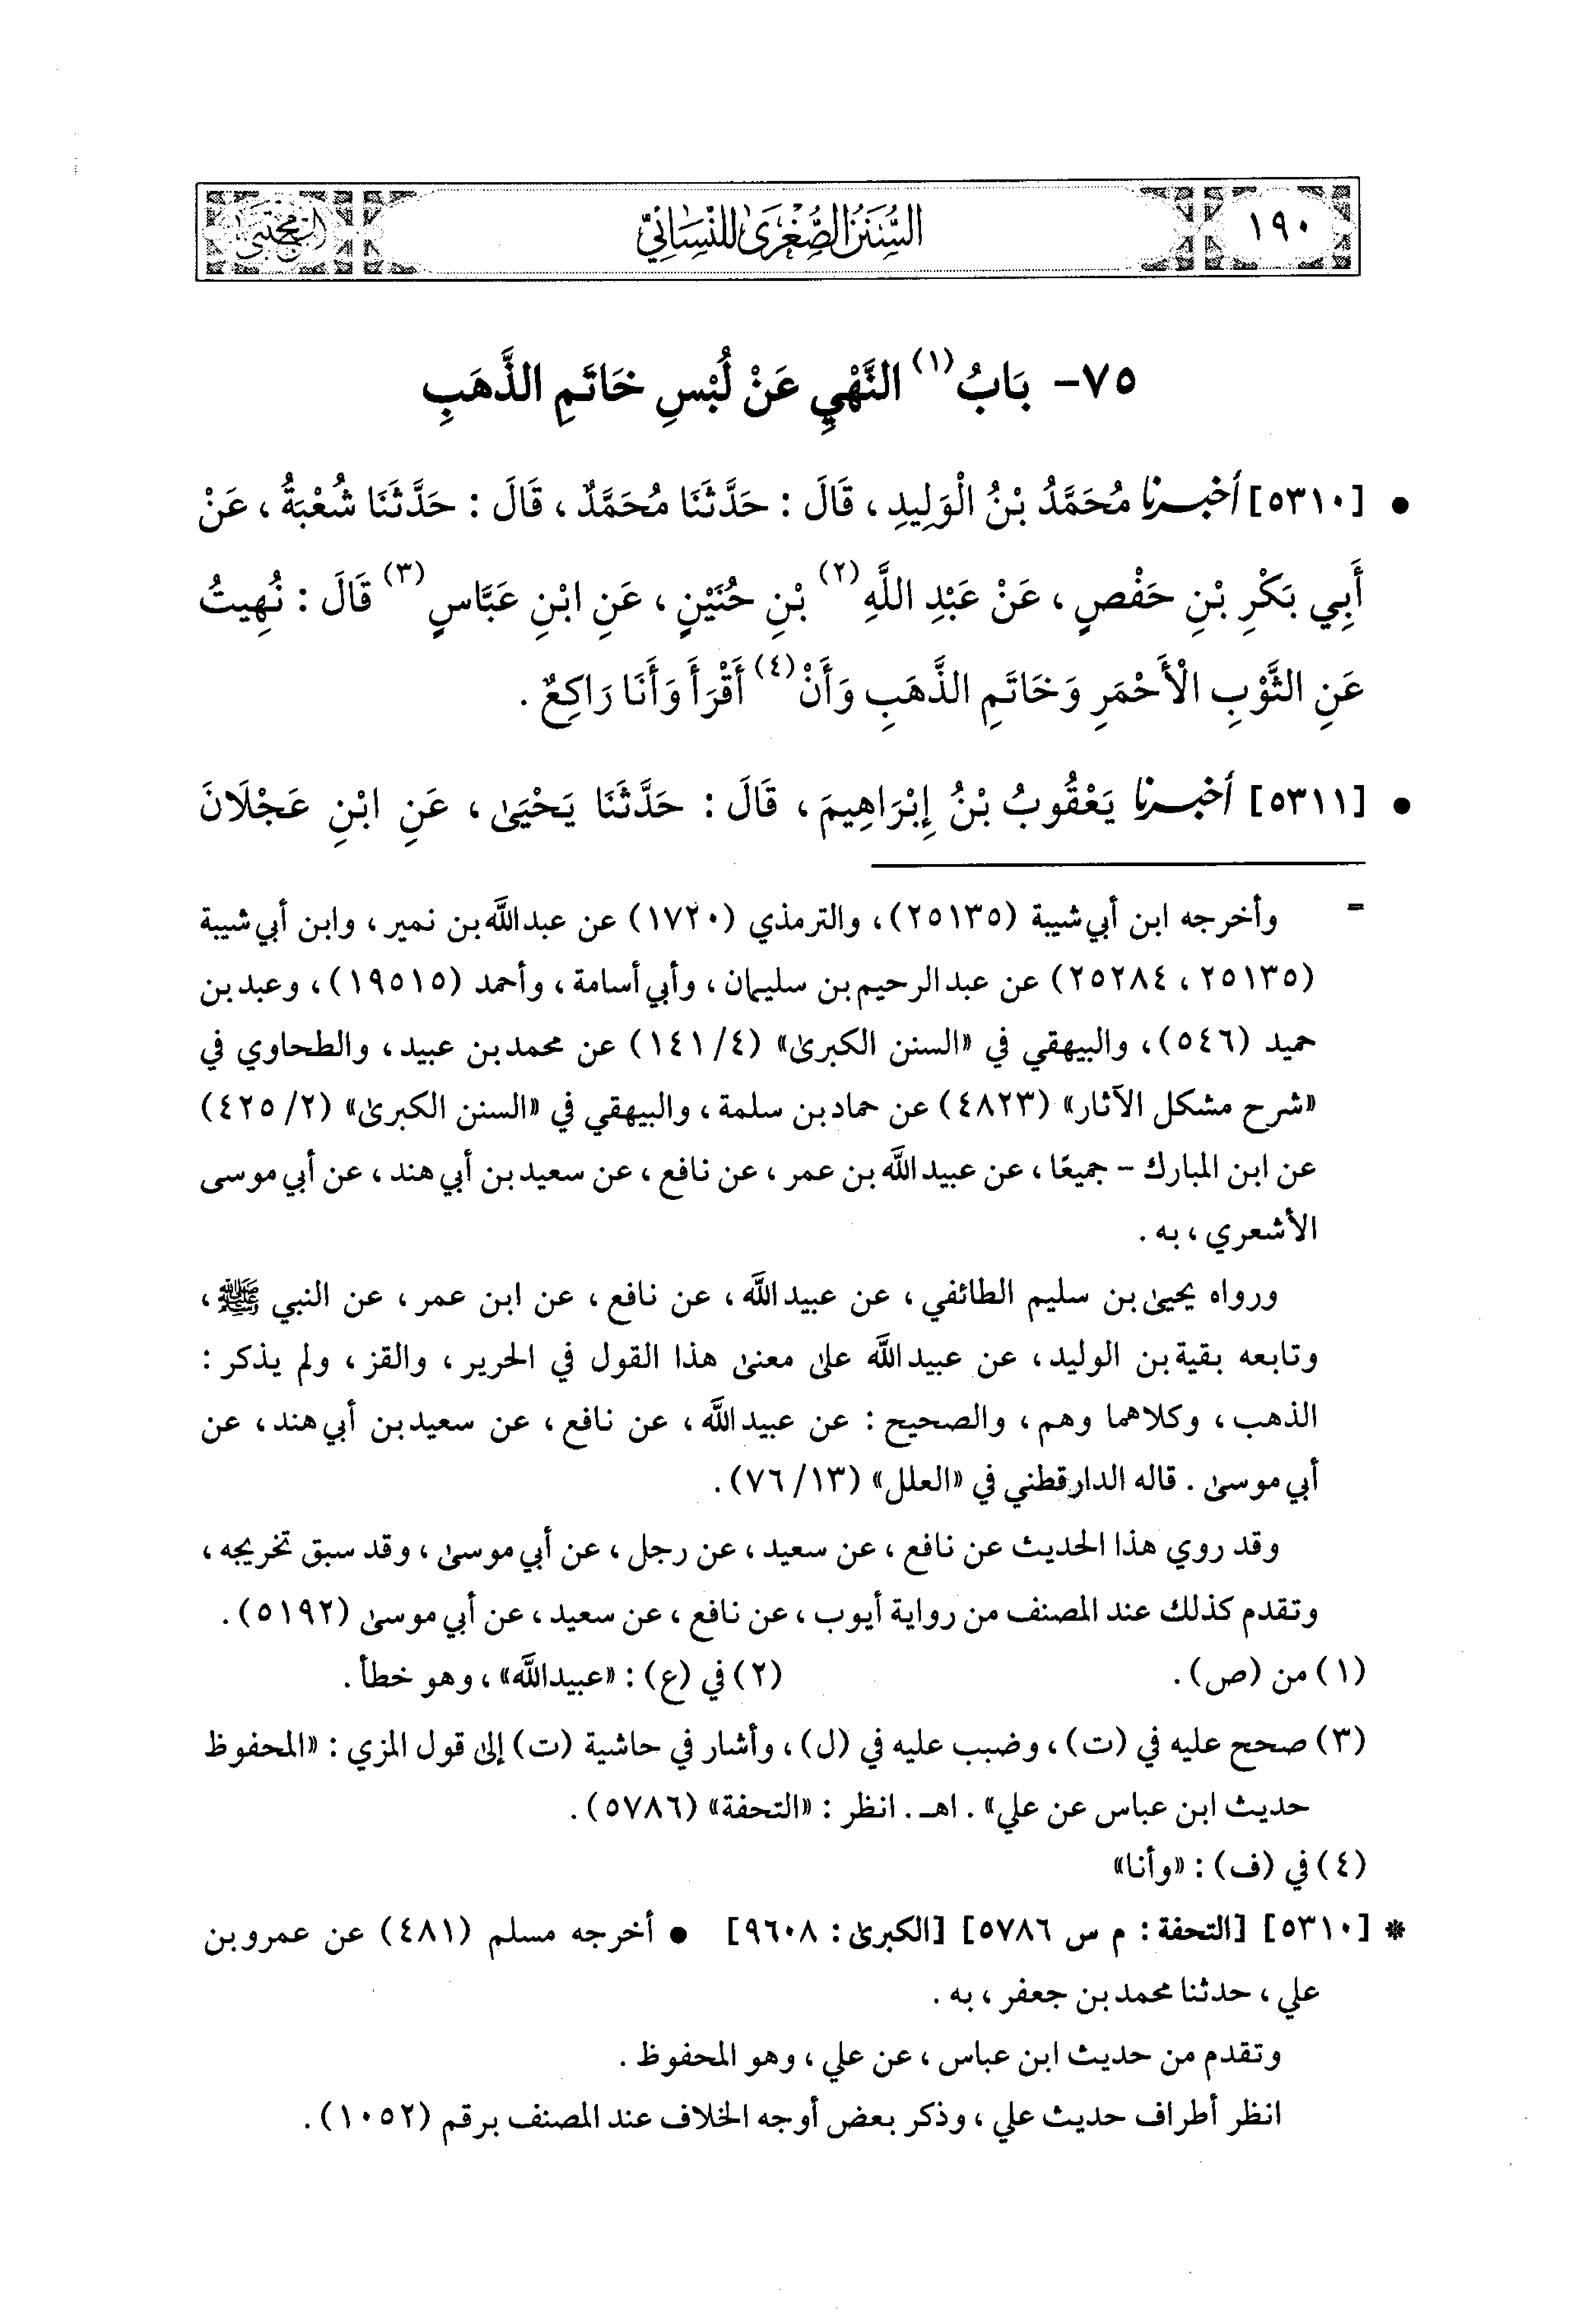 ١٩٠
السنن الصغرى للنسائي
المجتبى
٧٥- بَابُ (١) النَّهْيِ عَنْ لُبْسِ خَاتَمِ الذَّهَبِ
• [٥٣١٠] أخبرنا مُحَمَّدُ بْنُ الْوَلِيدِ ، قَالَ : حَدَّثَنَا مُحَمَّدٌ ، قَالَ : حَدَّثَنَا شُعْبَةُ ، عَنْ
أَبِي بَكْرِ بْنِ حَفْصٍ ، عَنْ عَبْدِ اللَّهِ (٢) بْنِ حُنَيْنٍ ، عَنِ ابْنِ عَبَّاسٍ (٣) قَالَ : نُهِيتُ
عَنِ الثَّوْبِ الْأَحْمَرِ وَخَاتَمِ الذَّهَبِ وَأَنْ (٤) أَقْرَأَ وَأَنَا رَاكِعٌ .
• [٥٣١١] أخبرنا يَعْقُوبُ بْنُ إِبْرَاهِيمَ ، قَالَ : حَدَّثَنَا يَحْيَىٰ ، عَنِ ابْنِ عَجْلَانَ
= وأخرجه ابن أبي شيبة (٢٥١٣٥) ، والترمذي (١٧٢٠) عن عبد اللَّه بن نمير ، وابن أبي شيبة
(٢٥١٣٥ ، ٢٥٢٨٤) عن عبد الرحيم بن سليمان ، وأبي أسامة ، وأحمد (١٩٥١٥) ، وعبد بن
حميد (٥٤٦) ، والبيهقي في «السنن الكبرىٰ» (٤/ ١٤١) عن محمد بن عبيد ، والطحاوي في
«شرح مشكل الآثار» (٤٨٢٣) عن حماد بن سلمة ، والبيهقي في «السنن الكبرىٰ» (٢/ ٤٢٥)
عن ابن المبارك - جميعًا ، عن عبيد اللَّه بن عمر ، عن نافع ، عن سعيد بن أبي هند ، عن أبي موسى
الأشعري ، به .
ورواه يحيىٰ بن سليم الطائفي ، عن عبيد اللَّه ، عن نافع ، عن ابن عمر ، عن النبي ﷺ ،
وتابعه بقية بن الوليد ، عن عبيد اللَّه علىٰ معنىٰ هذا القول في الحرير ، والقز ، ولم يذكر :
الذهب ، وكلاهما وهم ، والصحيح : عن عبيد اللَّه ، عن نافع ، عن سعيد بن أبي هند ، عن
أبي موسىٰ . قاله الدارقطني في «العلل» (١٣/ ٧٦) .
وقد روي هذا الحديث عن نافع ، عن سعيد ، عن رجل ، عن أبي موسىٰ ، وقد سبق تخريجه ،
وتقدم كذلك عند المصنف من رواية أيوب ، عن نافع ، عن سعيد ، عن أبي موسىٰ (٥١٩٢) .
(١) من (ص) . (٢) في (ع) : «عبيد اللَّه» ، وهو خطأ .
(٣) صحح عليه في (ت) ، وضبب عليه في (ل) ، وأشار في حاشية (ت) إلىٰ قول المزي : «المحفوظ
حديث ابن عباس عن علي» . اهـ . انظر : «التحفة» (٥٧٨٦) .
(٤) في (ف) : «وأنا»
* [٥٣١٠] [التحفة : م س ٥٧٨٦] [الكبرىٰ : ٩٦٠٨] • أخرجه مسلم (٤٨١) عن عمرو بن
علي ، حدثنا محمد بن جعفر ، به .
وتقدم من حديث ابن عباس ، عن علي ، وهو المحفوظ .
انظر أطراف حديث علي ، وذكر بعض أوجه الخلاف عند المصنف برقم (١٠٥٢) .